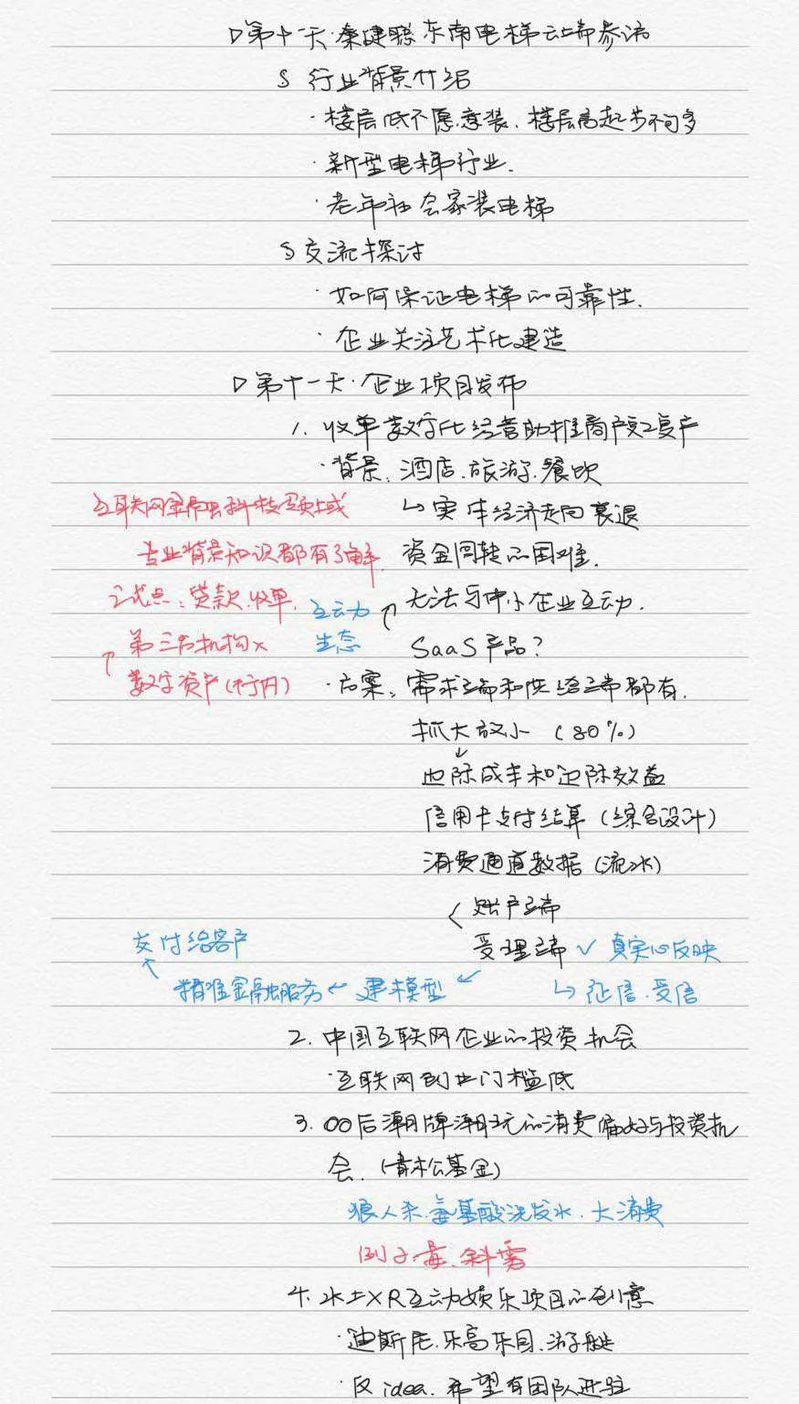 ▷第十一天·秦建聪 东南电梯云端参访
§ 行业背景介绍
·楼层低不愿意装、楼层高起步不可多
·新型电梯行业.
·老年社会家装电梯
§ 交流探讨
·如何保证电梯的可靠性.
·企业关注艺术化建造
▷第十一天·企业项目发布
1. 收单数字化经营助推商户复工复产
·背景、酒店.旅游.餐饮
互联网金融科技领域 ↳实体经济走向衰退
专业背景知识都有了解 资金周转的困难.
试点:贷款.收单. 互动力 ↗无法与中小企业互动.
↑第三方机构x 生态 SaaS产品?
数字资产(行内) ·方案:需求端和供给端都有.
抓大放小 (80%)
↓边际成本和边际效益
信用卡支付结算(综合设计)
消费通道数据(流水)
<账户端
交付给客户 受理端 √真实心反映
↖精准金融服务←建模型↙ ↳征信.受信
2. 中国互联网企业的投资机会
·互联网创业门槛低
3. 00后潮牌潮玩的消费偏好与投资机
会.(青松基金)
狼人杀.氨基酸洗发水.大消费
例子:毒.斜雾
4. 水上XR互动娱乐项目的创意
·迪斯尼.乐高乐园.游艇
·仅idea.希望有团队进驻